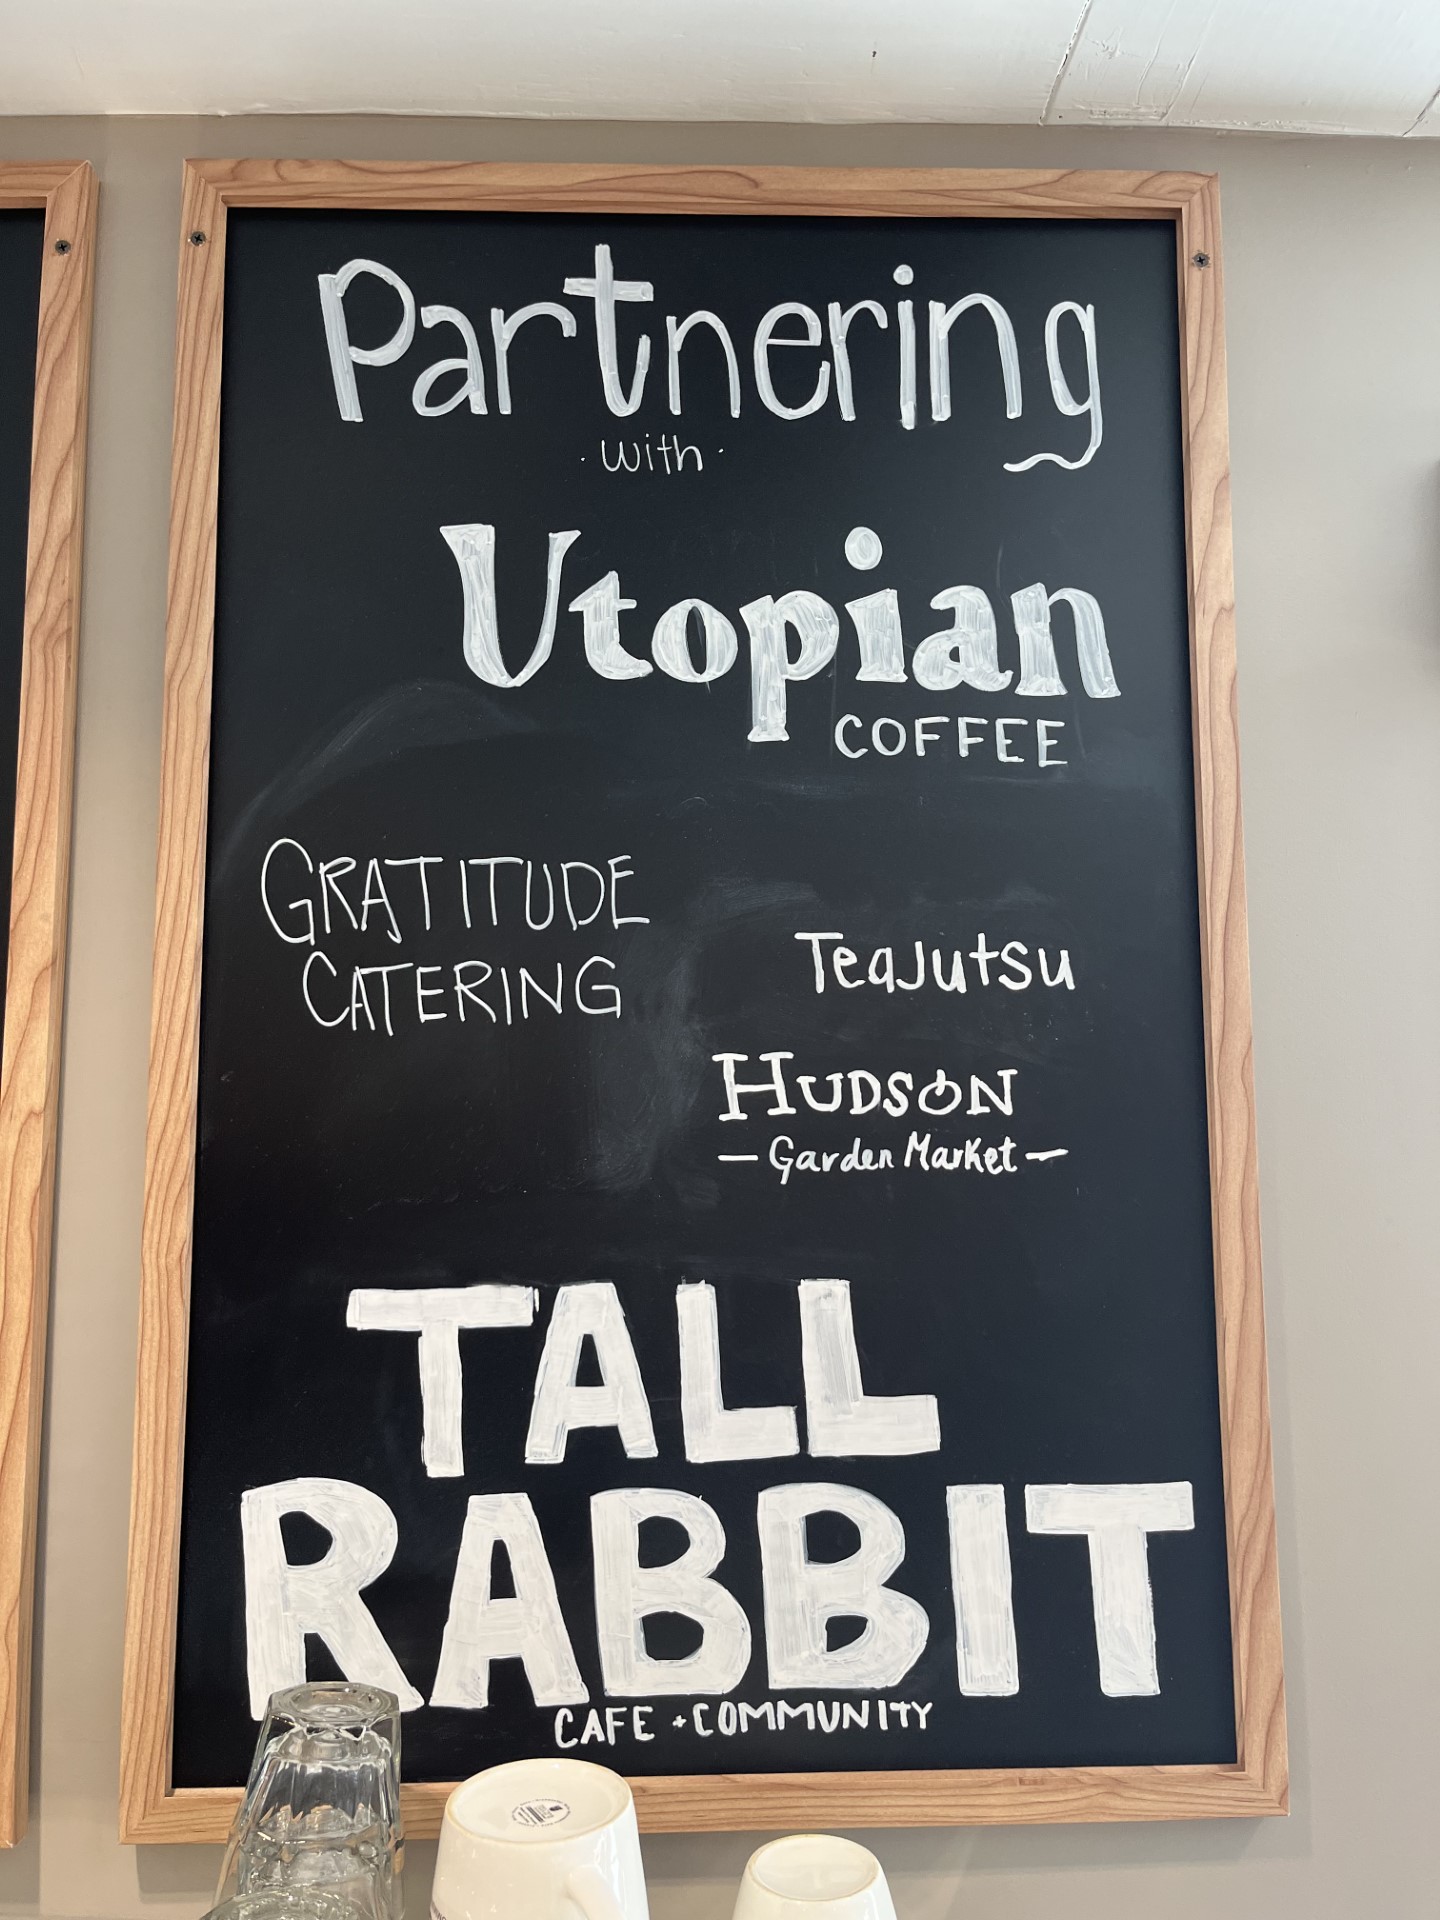 Partnering
· with ·
Utopian
COFFEE
GRATITUDE
CATERING
TeaJutsu
HUDSON
— Garden Market —
TALL
RABBIT
CAFE + COMMUNITY